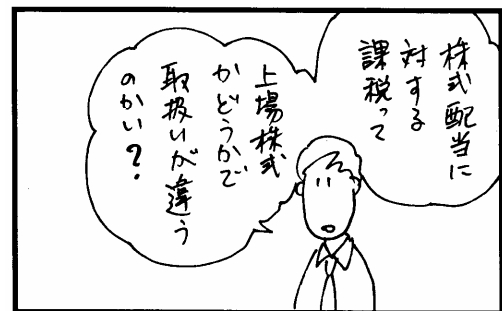 株式配当に
対する
課税って
上場株式
かどうかで
取扱いが違う
のかい？